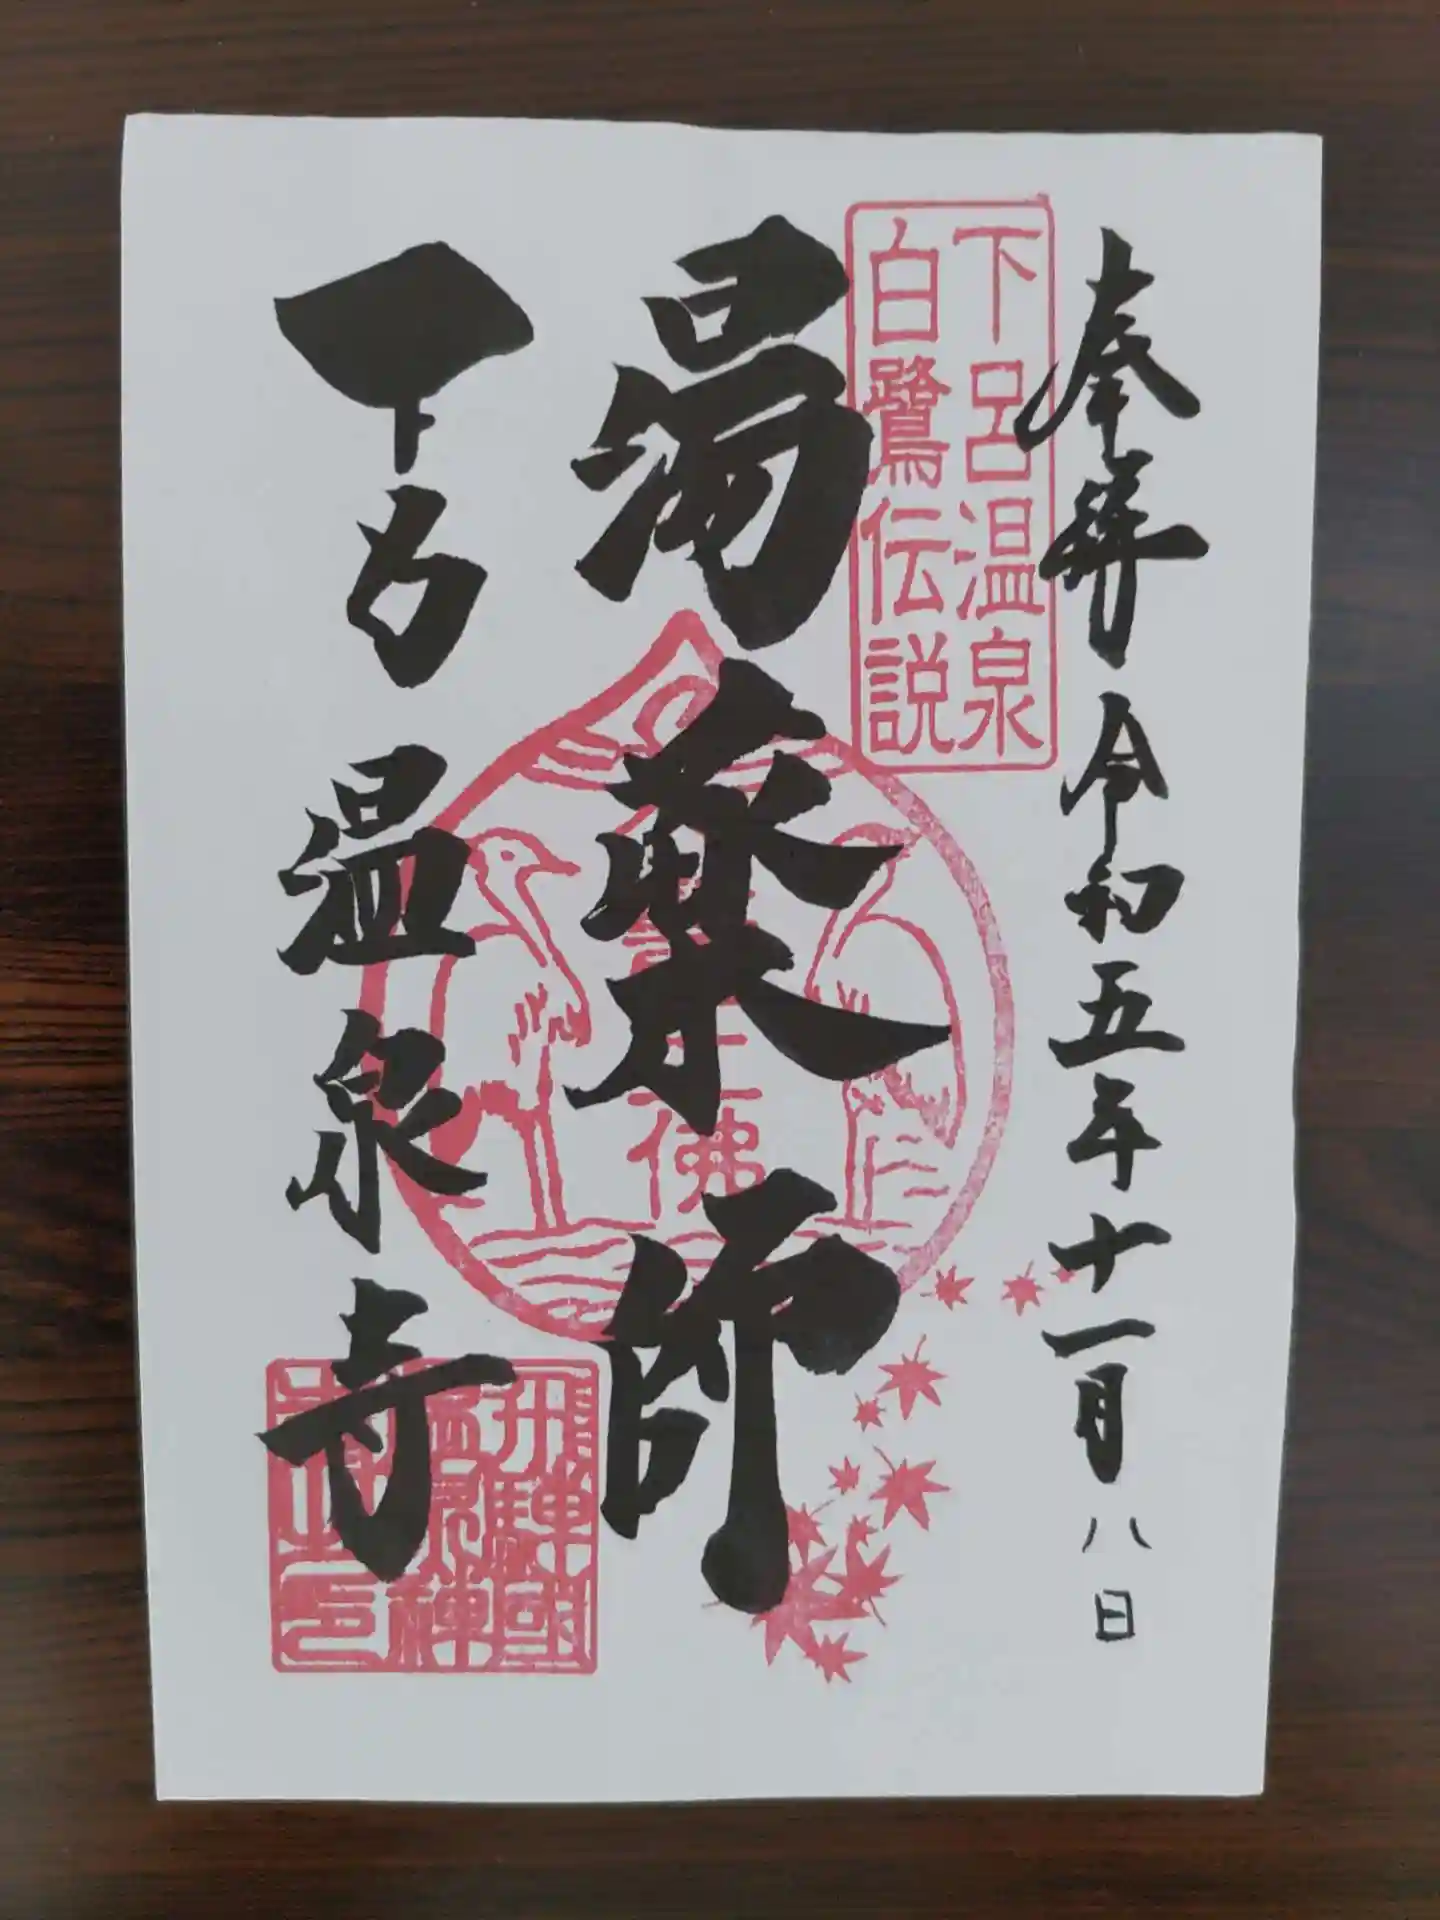 奉拝 令和五年十一月八日
下呂温泉
白鷺伝説
湯薬師
佛
下呂温泉寺